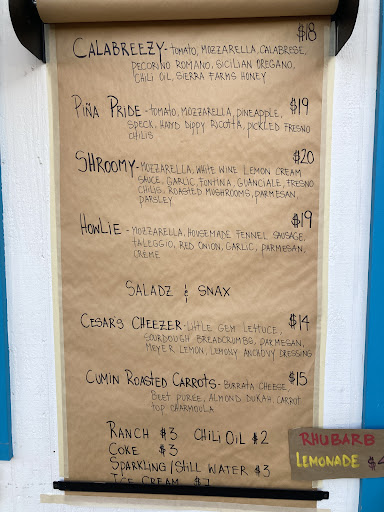 $18
CALABREEZY - TOMATO, MOZZARELLA, CALABRESE,
PECORINO ROMANO, SICILIAN OREGANO,
CHILI OIL, SIERRA FARMS HONEY
PIÑA PRIDE - TOMATO, MOZZARELLA, PINEAPPLE, $19
SPECK, HAND DIPPY RICOTTA, PICKLED FRESNO
CHILIS
$20
SHROOMY - MOZZARELLA, WHITE WINE LEMON CREAM
SAUCE, GARLIC, FONTINA, GUANCIALE, FRESNO
CHILIS, ROASTED MUSHROOMS, PARMESAN,
PARSLEY
$19
HOWLIE - MOZZARELLA, HOUSEMADE FENNEL SAUSAGE,
TALEGGIO, RED ONION, GARLIC, PARMESAN,
CREME
SALADZ & SNAX
CESARS CHEEZER - LITTLE GEM LETTUCE, $14
SOURDOUGH BREADCRUMBS, PARMESAN,
MEYER LEMON, LEMONY ANCHOVY DRESSING
CUMIN ROASTED CARROTS - BURRATA CHEESE, $15
BEET PUREE, ALMOND DUKAH, CARROT
TOP CHARMOULA
RANCH $3 CHILI OIL $2
COKE $3
SPARKLING/STILL WATER $3
ICE CREAM
RHUBARB
LEMONADE $4